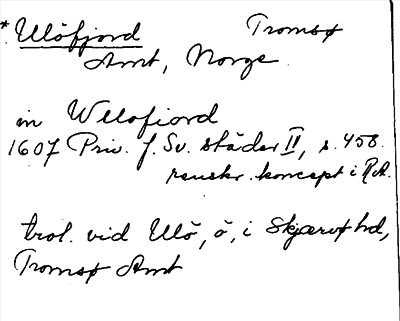 * Ulöfjord Tromsø
Amt, Norge
in Wllofiord
1607 Priv. f. Sv. städer II, s. 458.
renskr. koncept i RA.
trol. vid Ulö, ö, i Skjærvø hd,
Tromsø Amt